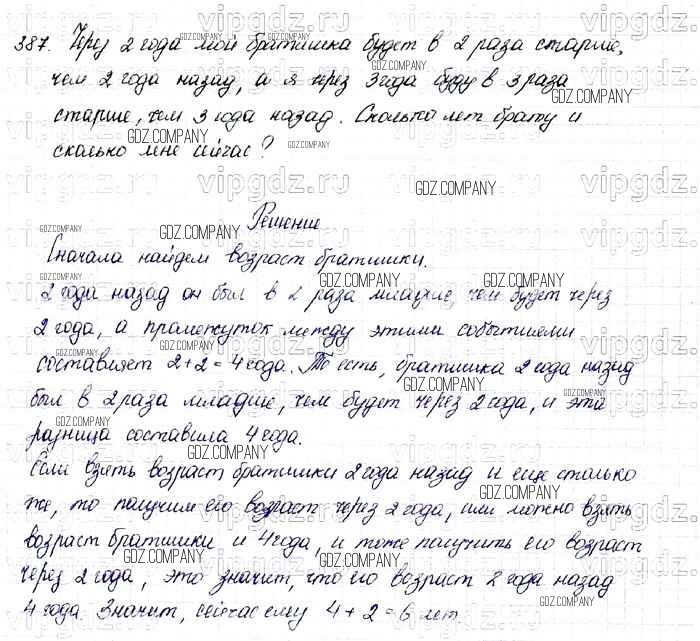 387. Через 2 года мой братишка будет в 2 раза старше,
чем 2 года назад, а я через 3 года буду в 3 раза
старше, чем 3 года назад. Сколько лет брату и
сколько мне сейчас?
Решение
Сначала найдем возраст братишки.
2 года назад он был в 2 раза младше, чем будет через
2 года, а промежуток между этими событиями
составляет 2+2=4 года. То есть, братишка 2 года назад
был в 2 раза младше, чем будет через 2 года, и эта
разница составила 4 года.
Если взять возраст братишки 2 года назад и еще столько
же, то получим его возраст через 2 года, или можно взять
возраст братишки и 4 года, и тоже получить его возраст
через 2 года, это значит, что его возраст 2 года назад
4 года. Значит, сейчас ему 4+2=6 лет.
vipgdz.ru
GDZ.COMPANY